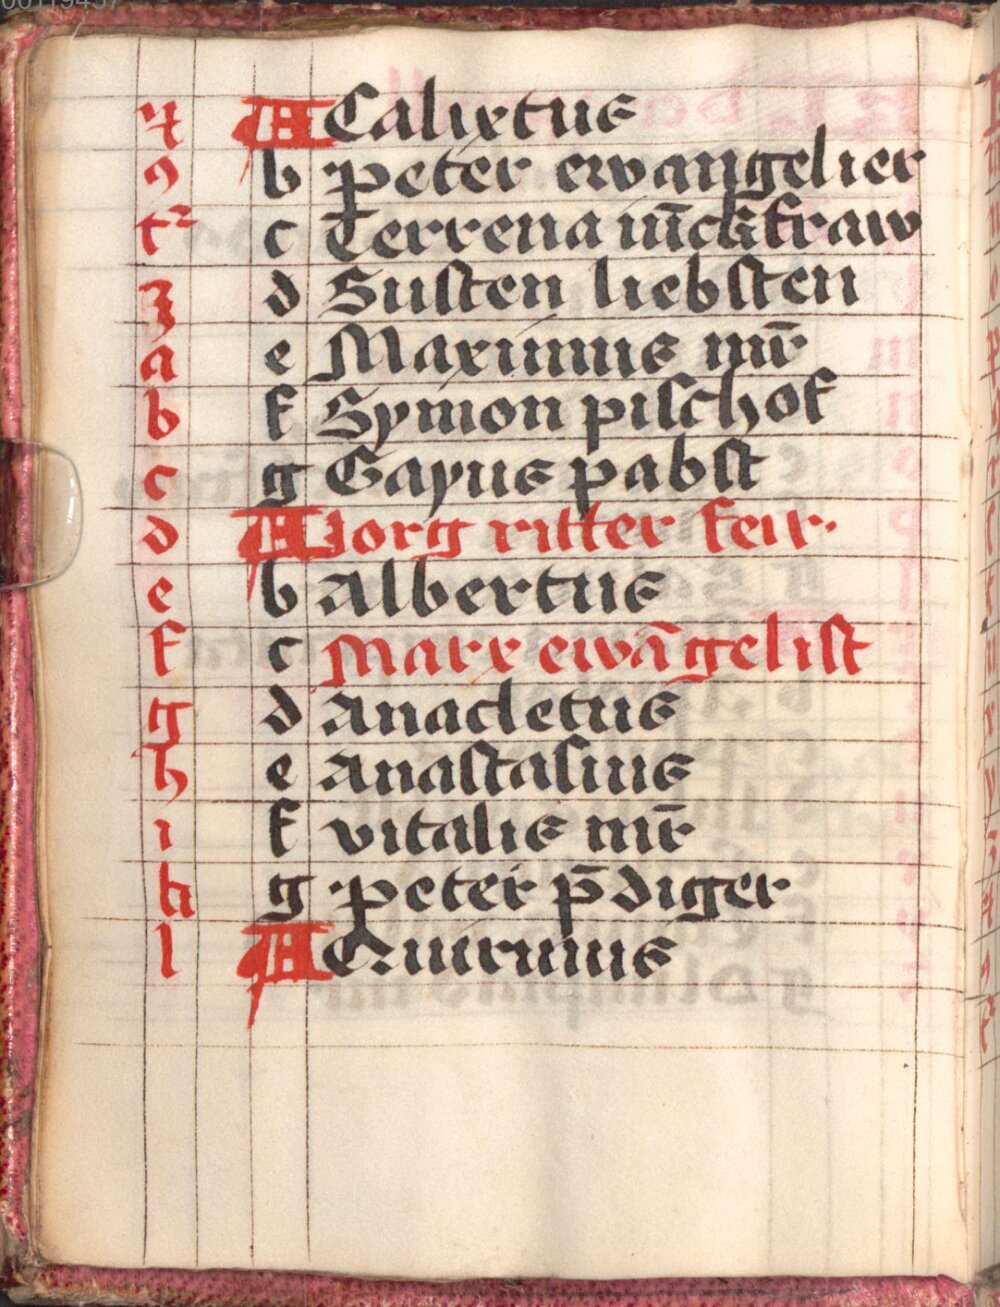 00119457
A Calixtus
9 b peter ewangelier
c Terrena iu̅ckfraw
z d Susten liebsten
a e Maximus mr̅
b f Symon pischof
c g Gayus pabst
d A Jorg ritter feir.
e b Albertus
f c Marx ewa̅gelist
g d Anacletus
h e Anastasius
i f vitalis mr̅
k g peter p̅diger
l A Quirinus